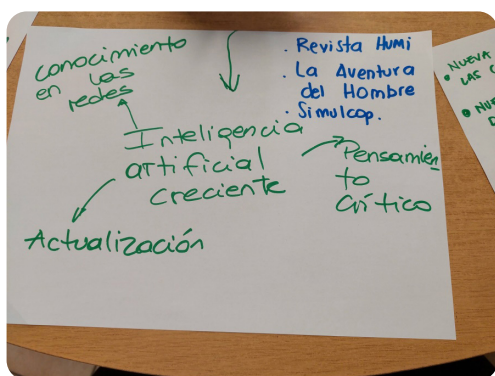 conocimiento
en las
redes
. Revista Humi
. La Aventura
del Hombre
. Simulcop.
Inteligencia
artificial
creciente
Pensamien
to
crítico
Actualización
. NUEVA
LAS